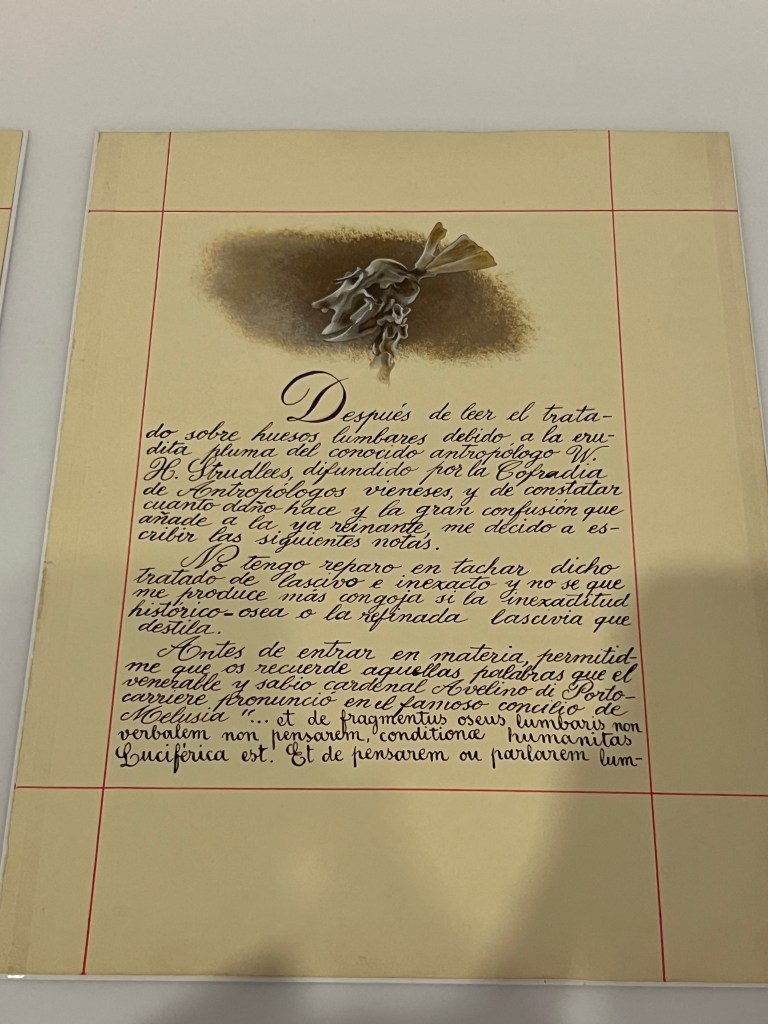 Después de leer el trata-
do sobre huesos lumbares debido a la eru-
dita pluma del conocido antropólogo W.
H. Strudlees, difundido por la Cofradía
de Antropólogos vieneses, y de constatar
cuanto daño hace y la gran confusión que
añade a la ya reinante, me decido a es-
cribir las siguientes notas.
No tengo reparo en tachar dicho
tratado de lascivo e inexacto y no se que
me produce más congoja si la inexactitud
histórico-osea o la refinada lascivia que
destila.
Antes de entrar en materia, permitid-
me que os recuerde aquellas palabras que el
venerable y sabio cardenal Avelino di Porto-
carriere pronunció en el famoso concilio de
Melusia "... et de fragmentus oseus lumbaris non
verbalem non pensarem, conditionæ humanitas
Luciférica est. Et de pensarem ou parlarem lum-